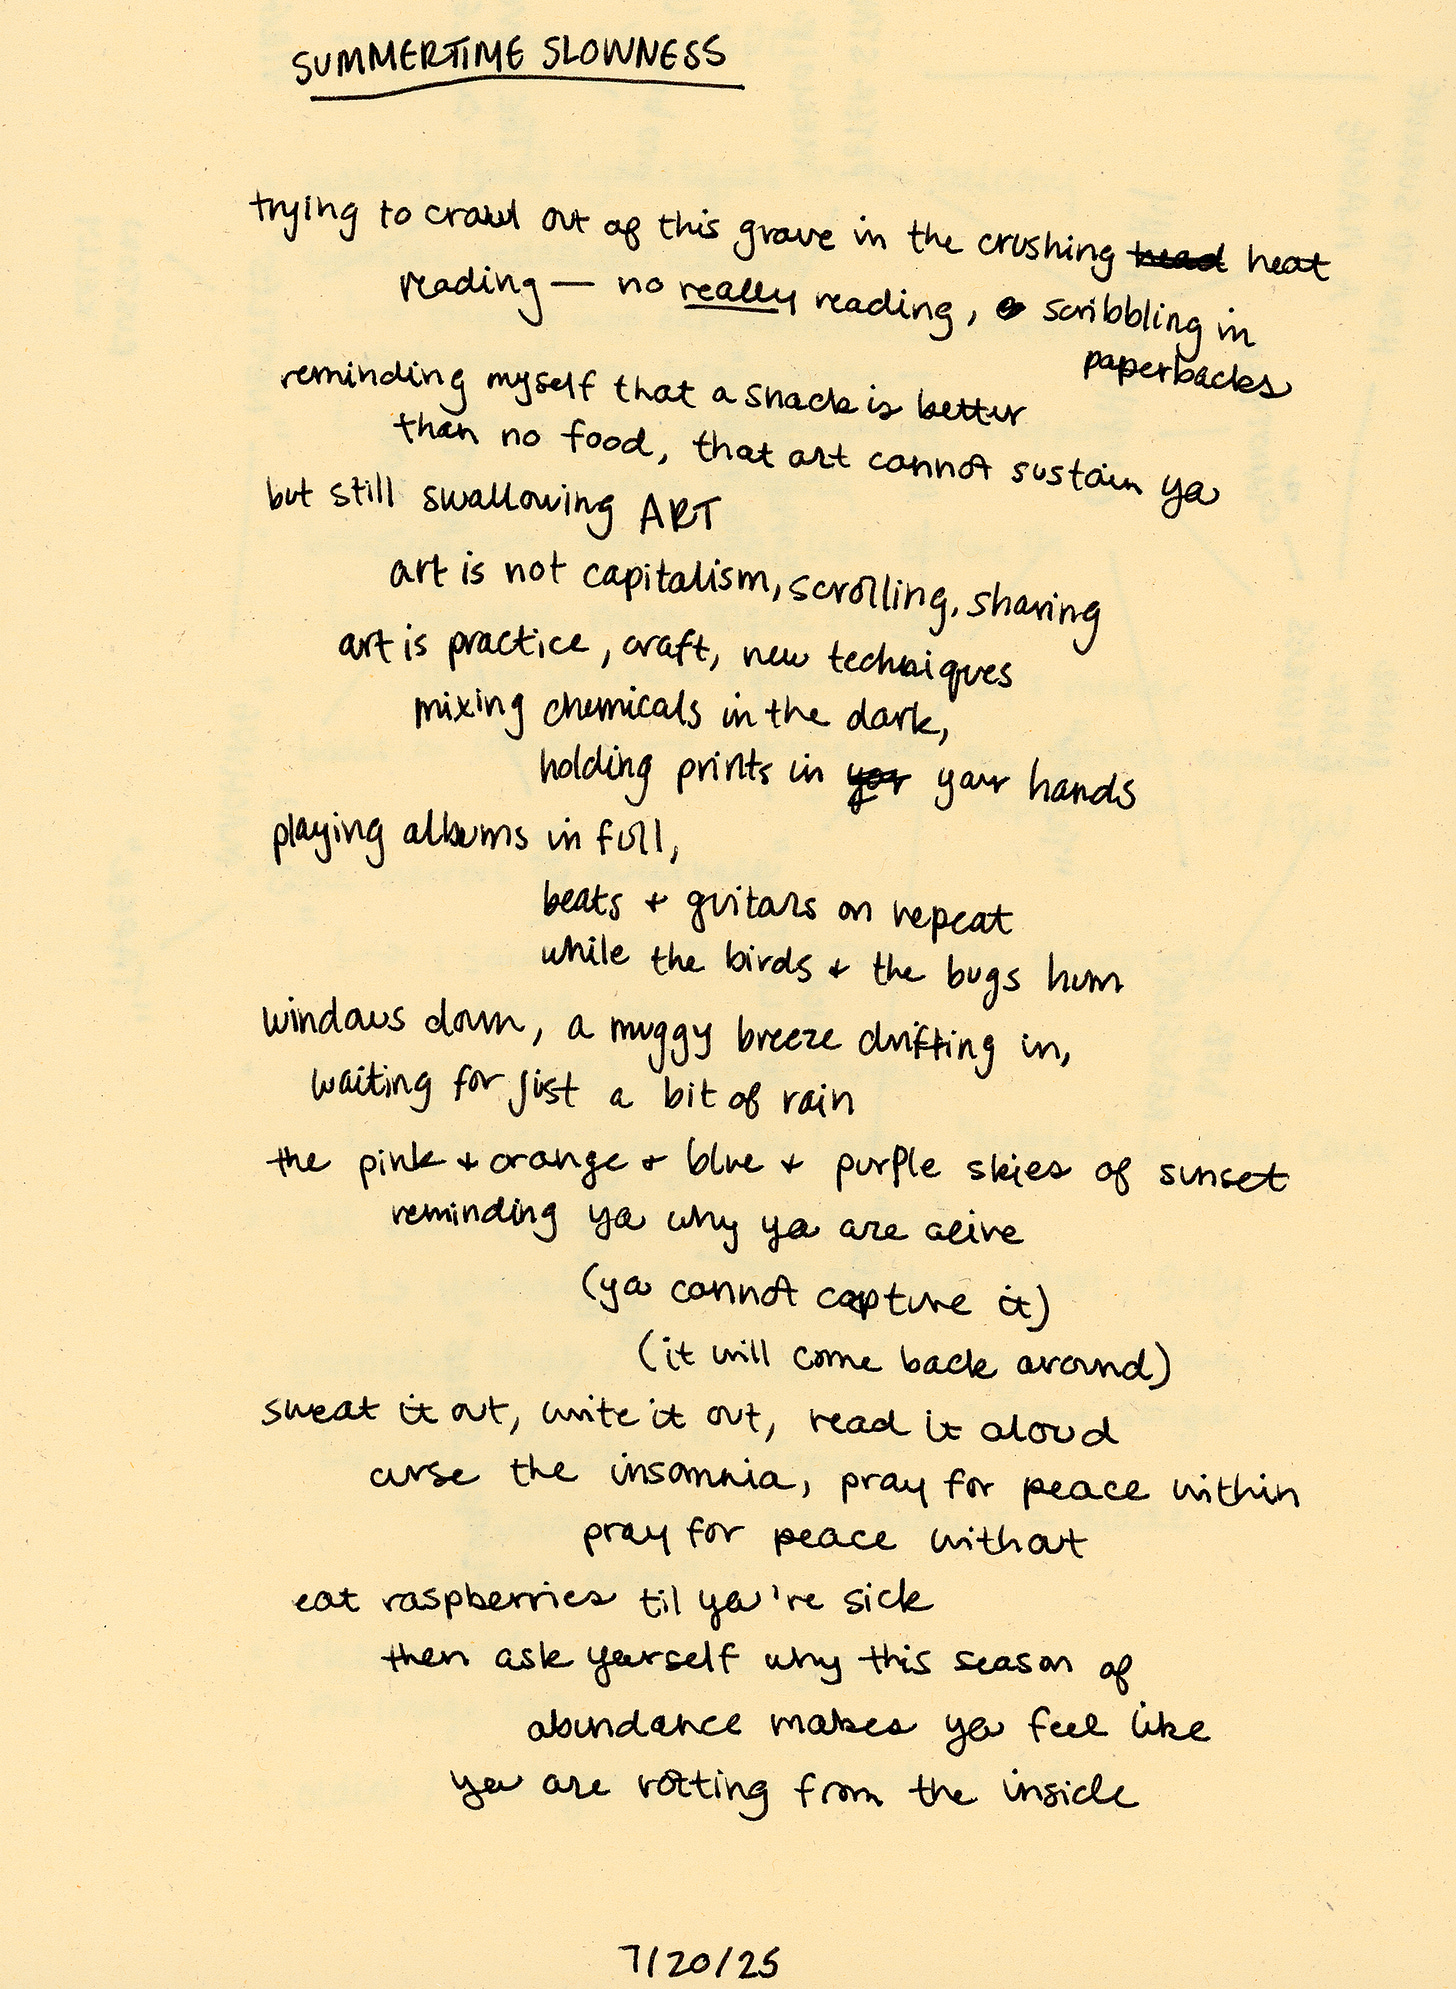 SUMMERTIME SLOWNESS
trying to crawl out of this grave in the crushing head heat
reading — no really reading, scribbling in
paperbacks
reminding myself that a snack is better
than no food, that art cannot sustain you
but still swallowing ART
art is not capitalism, scrolling, sharing
art is practice, craft, new techniques
mixing chemicals in the dark,
holding prints in your your hands
playing albums in full,
beats + guitars on repeat
while the birds + the bugs hum
windows down, a muggy breeze drifting in,
waiting for just a bit of rain
the pink + orange + blue + purple skies of sunset
reminding you why you are alive
(you cannot capture it)
(it will come back around)
sweat it out, write it out, read it aloud
curse the insomnia, pray for peace within
pray for peace without
eat raspberries til you're sick
then ask yourself why this season of
abundance makes you feel like
you are rotting from the inside
7/20/25